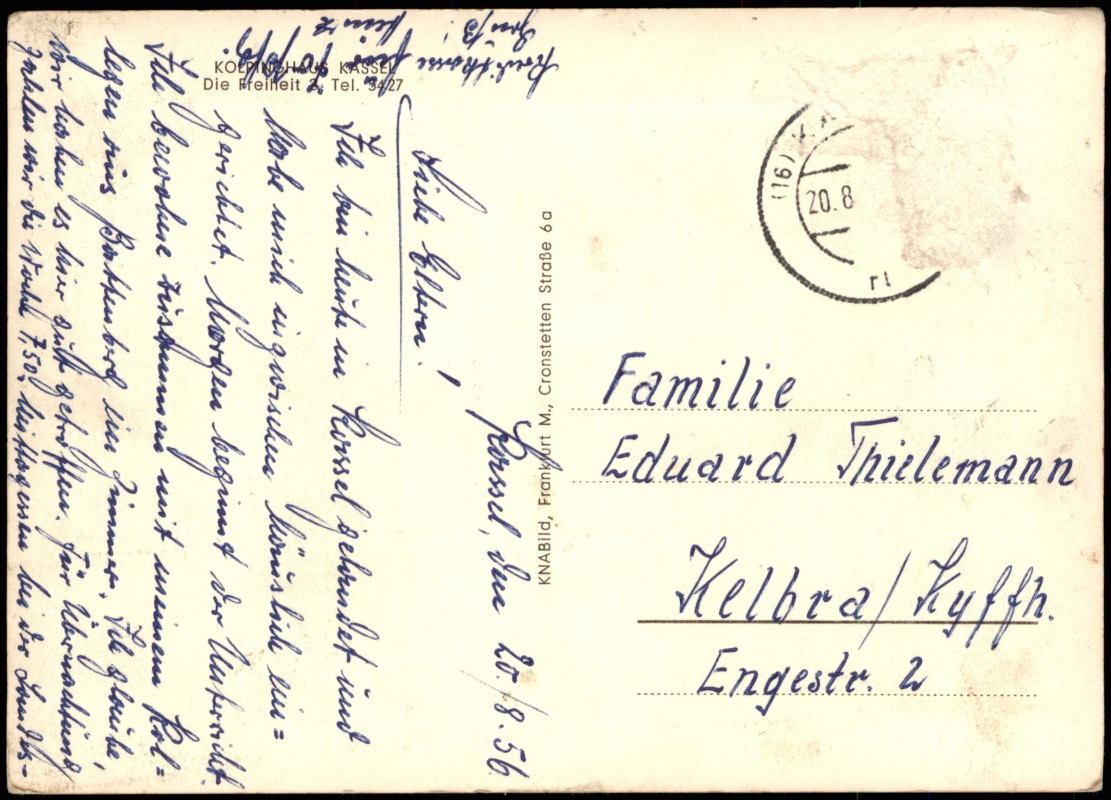 KOLPINGHAUS KASSEL
Die Freiheit 2, Tel. 3427
Kassel, den 20./8.56.
Liebe Eltern!
Ich bin heute in Kassel gelandet und
habe mich inzwischen häuslich ein=
gerichtet. Morgen beginnt der Unterricht.
Ich bewohne zusammen mit meinem Kol=
legen aus Battenberg ein Zimmer. Ich glaube,
wir haben es hier gut getroffen. Für Übernachtung
zahlen wir die Woche 7,50, Mittagessen bei der Landes-
für
Gruß!
Heinz
KNABild, Frankfurt M., Cronstetten Straße 6a
(16) KA
20.8
r1
Familie
Eduard Thielemann
Kelbra/Kyffh.
Engestr. 2